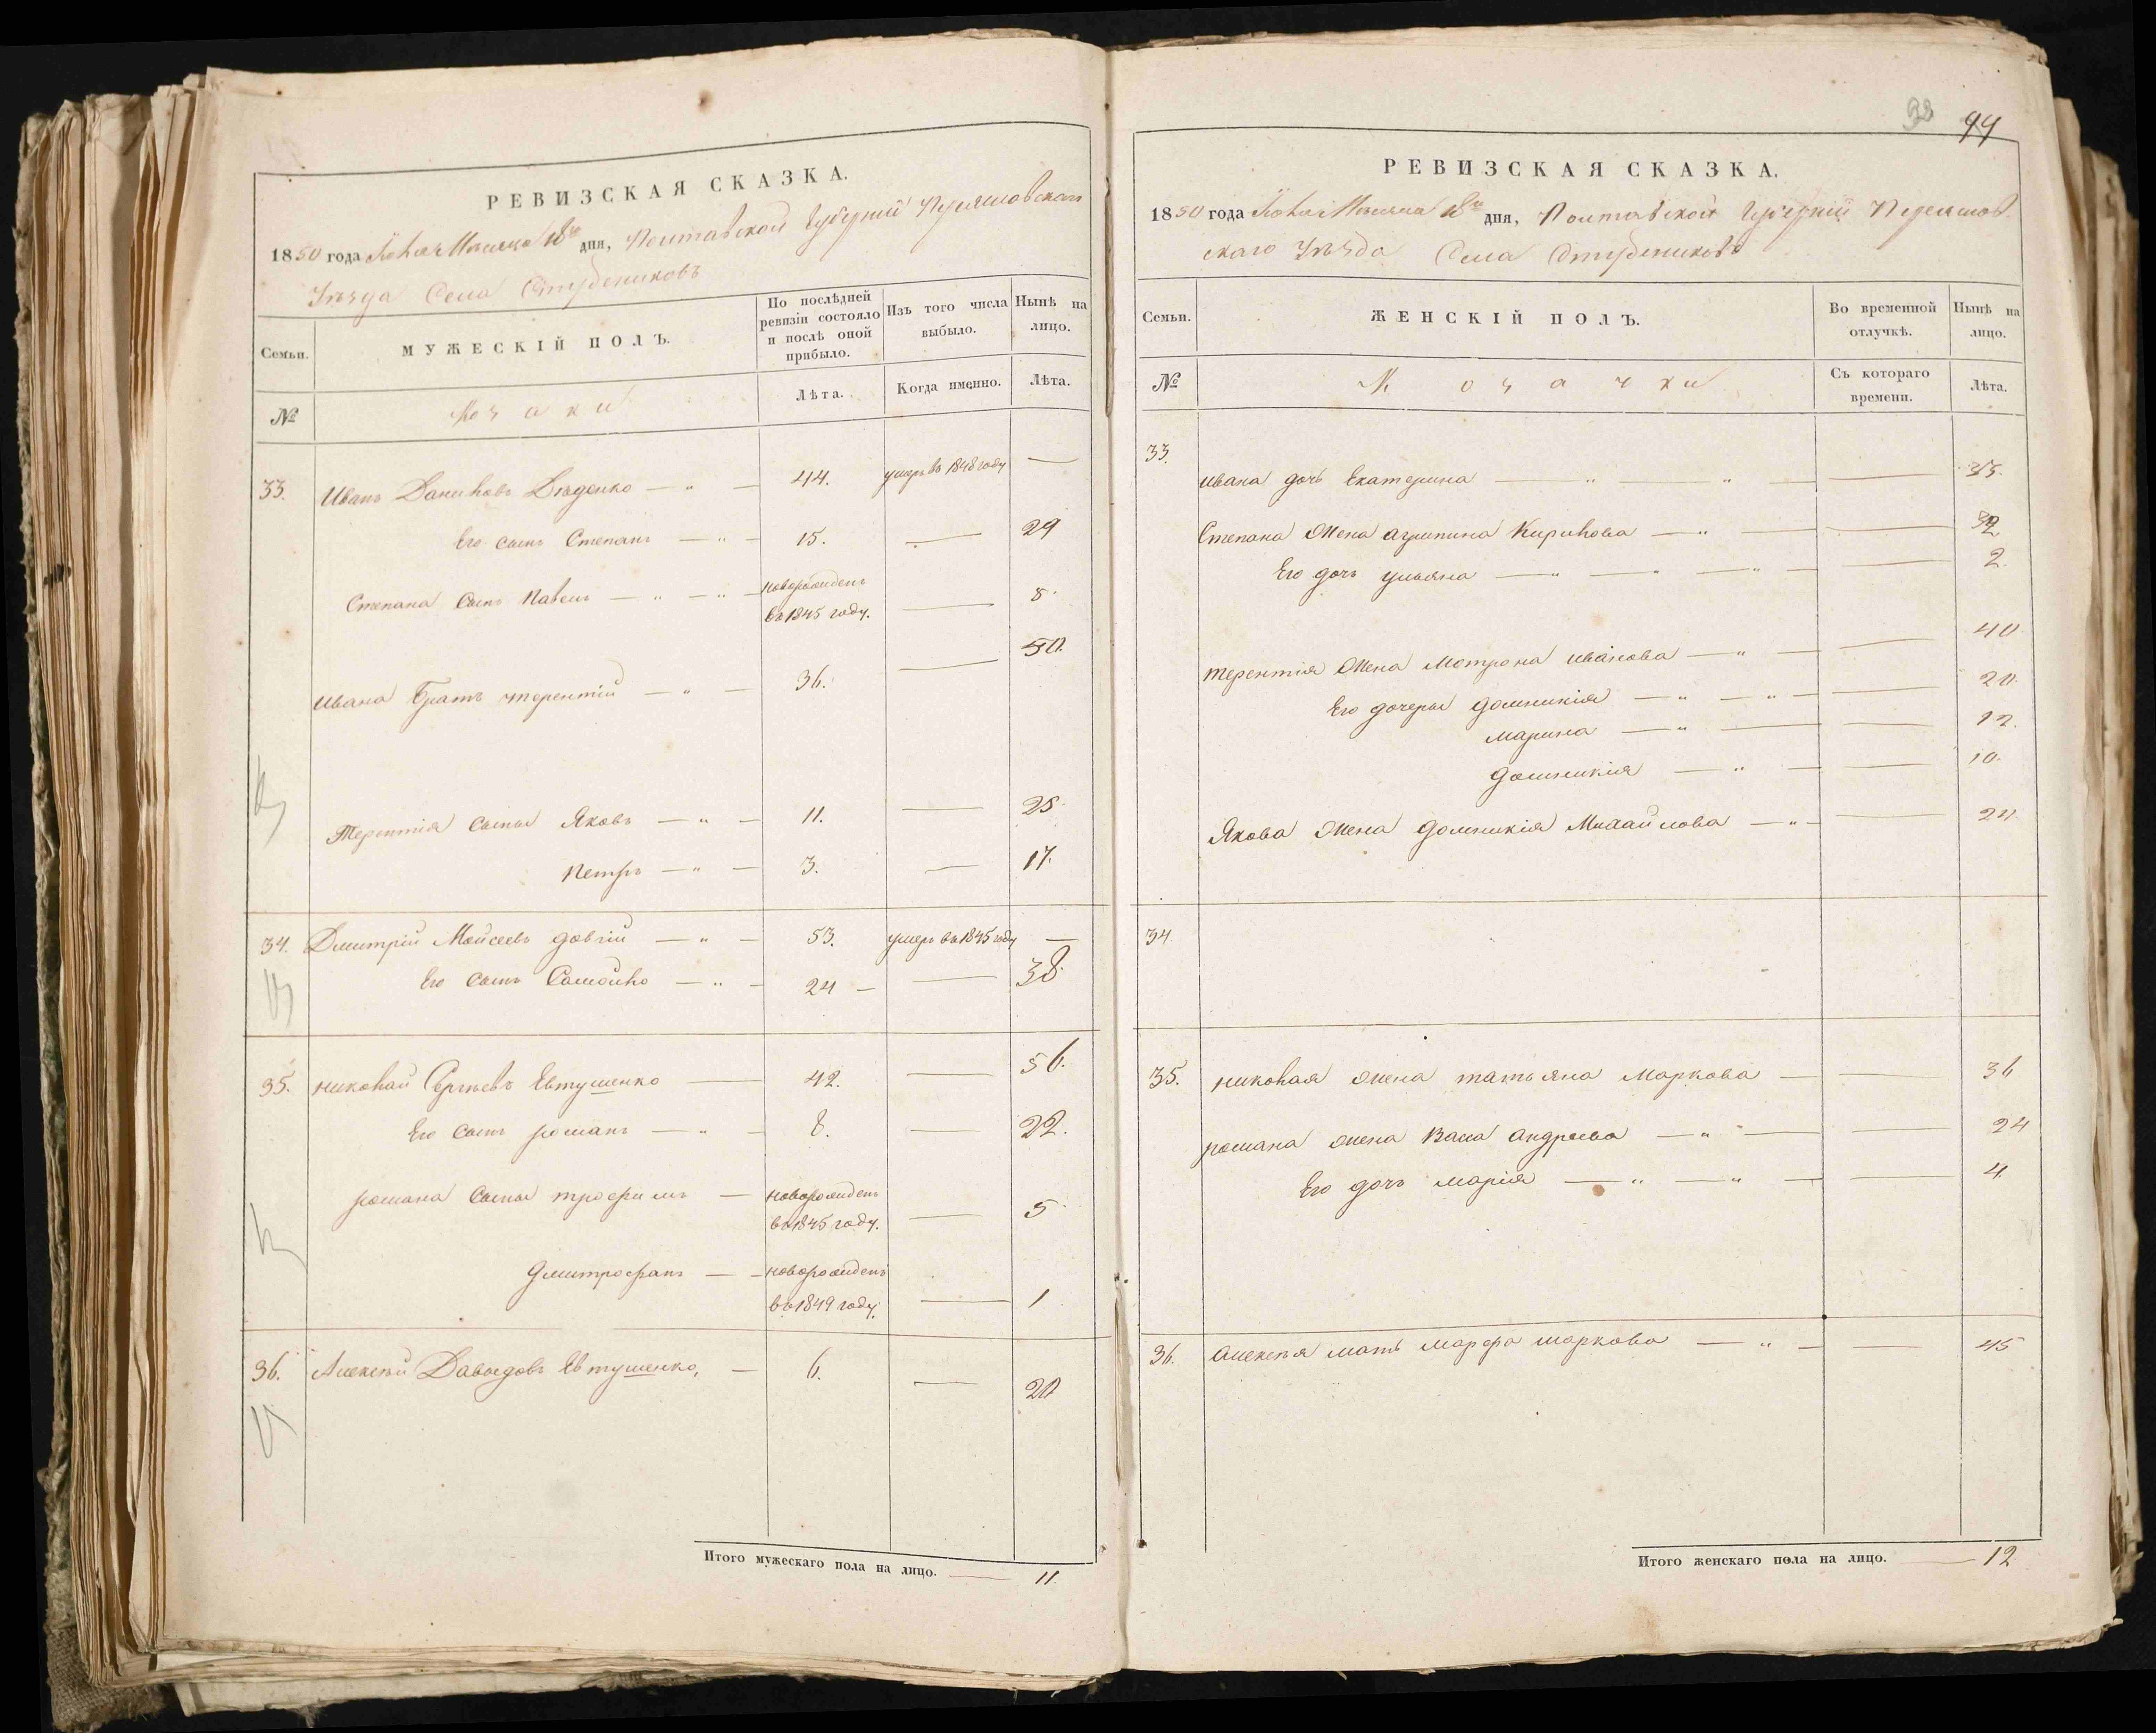 РЕВИЗСКАЯ СКАЗКА.
1850 года Мѣсяца 18го дня, Полтавской Губерніи Переяславскаго
Уѣзда Села Студениковъ
Семьи.
МУЖЕСКІЙ ПОЛЪ.
По послѣдней ревизіи состояло и послѣ оной прибыло.
Изъ того числа выбыло.
Нынѣ на лицо.
№
Козаки
Лѣта.
Когда именно.
Лѣта.
33. Иванъ Даниловъ Дяденко — „ — 44. умеръ въ 1848 году —
Его сынъ Степанъ — „ — 15. — 29
Степана сынъ Павелъ — „ — „ — новорожденъ въ 1845 году. — 5.
Ивана Братъ Терентій — „ — 36. — 50.
Терентія сыны Яковъ — „ — 11. — 25.
Петръ — „ — 3. — 17.
34. Дмитрій Мойсеевъ Довгій — „ — 53. умеръ въ 1845 году —
Его сынъ Самойло — „ — 24 — — 38.
35. Николай Сергѣевъ Евтушенко — 42. — 56.
Его сынъ Романъ — „ — 8. — 22.
Романа сыны Трофимъ — новорожденъ въ 1845 году. — 5
Дмитрофанъ — новорожденъ въ 1849 году. — 1
36. Алексѣй Давыдовъ Евтушенко, — 6. — 20
Итого мужескаго пола на лицо. — 11.
99
РЕВИЗСКАЯ СКАЗКА.
1850 года Мѣсяца 18го дня, Полтавской Губерніи Переяслов-
скаго Уѣзда Села Студениковъ
Семьи.
ЖЕНСКІЙ ПОЛЪ.
Во временной отлучкѣ.
Нынѣ на лицо.
№
Козачки
Съ котораго времени.
Лѣта.
33. Ивана дочь Екатерина — „ — „ — — 35.
Степана жена Агрипина Кирилова — „ — —
Его дочь Ульяна — „ — „ — „ — — 2.
Терентія жена Мотрона Иванова — „ — — 40
Его дочеры Домникія — „ — „ — — 20.
Марина — „ — — 12.
Домникія — „ — — 10.
Якова жена Домникія Михайлова — „ — — 24.
34.
35. Николая жена Татьяна Маркова — — 36
Романа жена Васа Андреева — „ — — 24
Его дочь Марія — „ — „ — — 4.
36. Алексѣя мать Марфа Маркова — „ — — 45
Итого женскаго пола на лицо. — 12